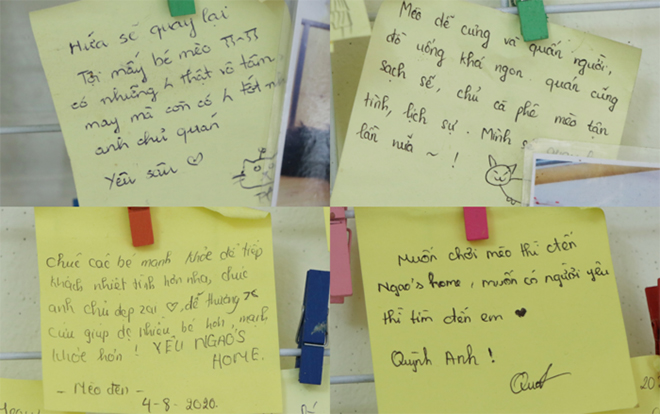 Hứa sẽ quay lại
Tội mấy bé mèo TT-TT
có những h thật vô tâm,
may mà còn có h tốt n
anh chủ quán
Yêu sâu ♡
Mèo dễ cưng và quấn người,
đồ uống khá ngon, quán cũng
sạch sẽ, chủ cà phê mèo tận
tình, lịch sự. Mình s
lần nữa ~ !
Chúc các bé mạnh khỏe để tiếp
khách nhiệt tình hơn nha, chúc
anh chủ đẹp zai ♡, dễ thương
cứu giúp đc nhiều bé hơn, mạnh
khỏe hơn! YÊU NGAO'S
HOME.
- Mèo đen -
4-8-2020.
Muốn chơi mèo thì đến
Ngao's home, muốn có người yêu
thì tìm đến em ♥
Quỳnh Anh!
20